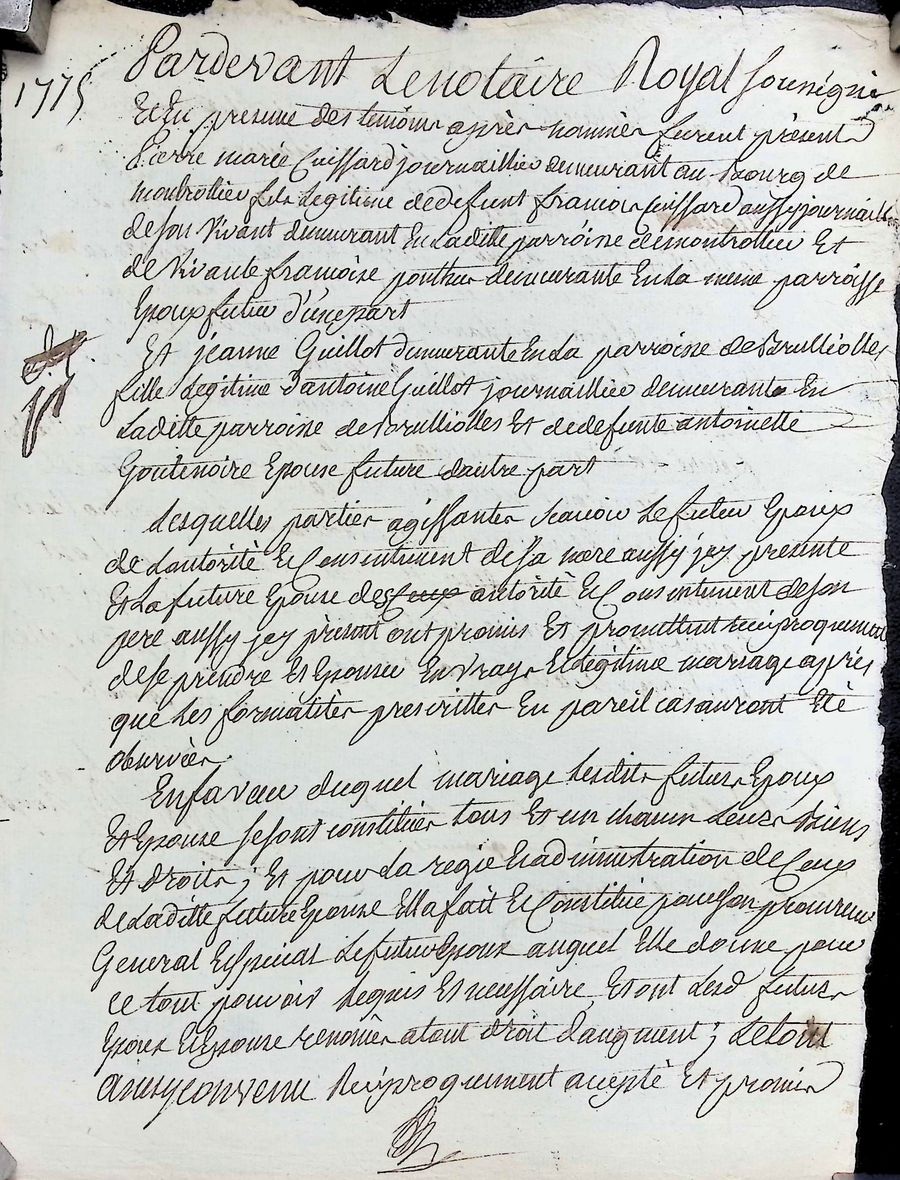 1775
Pardevant Le notaire Royal soussigné
Et En presence des temoins après nommés furent présent
Pierre marie Cuissard journaillier demeurant au Bourg de
montrottier fils Legitime de defunt francois Cuissard aussy journaillier
de son Vivant demeurant En Laditte parroisse de montrottier Et
de Vivante francoise ponthus demeurante En La meme parroisse
Epoux futur d'une part
Et jeanne Guillot demeurante En La parroisse de Brulliolles
fille Legitime d'antoine Guillot journaillier demeurante En
Laditte parroisse de Brulliolles Et de defunte antoinette
Goutenoire Epouse future dautre part
Lesquelles parties agissantes scavoir Le futur Epoux
de Lautorité Et Consentiment de sa mere aussy jcy presente
Et La future Epouse de autorité Et Consentiment de son
pere aussy jcy présent ont promis Et promettent réciproquement
de se prendre Et Epouser En Vray Et Légitime mariage après
que Les formalités prescrittes En pareil cas auront Eté
observées
En faveur duquel mariage Lesdits futurs Epoux
Et Epouse se sont constitués tous Et un chacun Leurs Biens
Et droits ; Et pour La regie Et administration de Ceux
de Laditte future Epouse Elle a fait Et Constitué pour son procureur
General Et Special Le futur Epoux auquel Elle donne pour
ce tout pouvoir Requis Et necessaire Et ont Lesd futurs
Epoux Et Epouse renoncés a tout droit daugment ; Le tout
ainsy convenu Reciproquement accepté Et promis